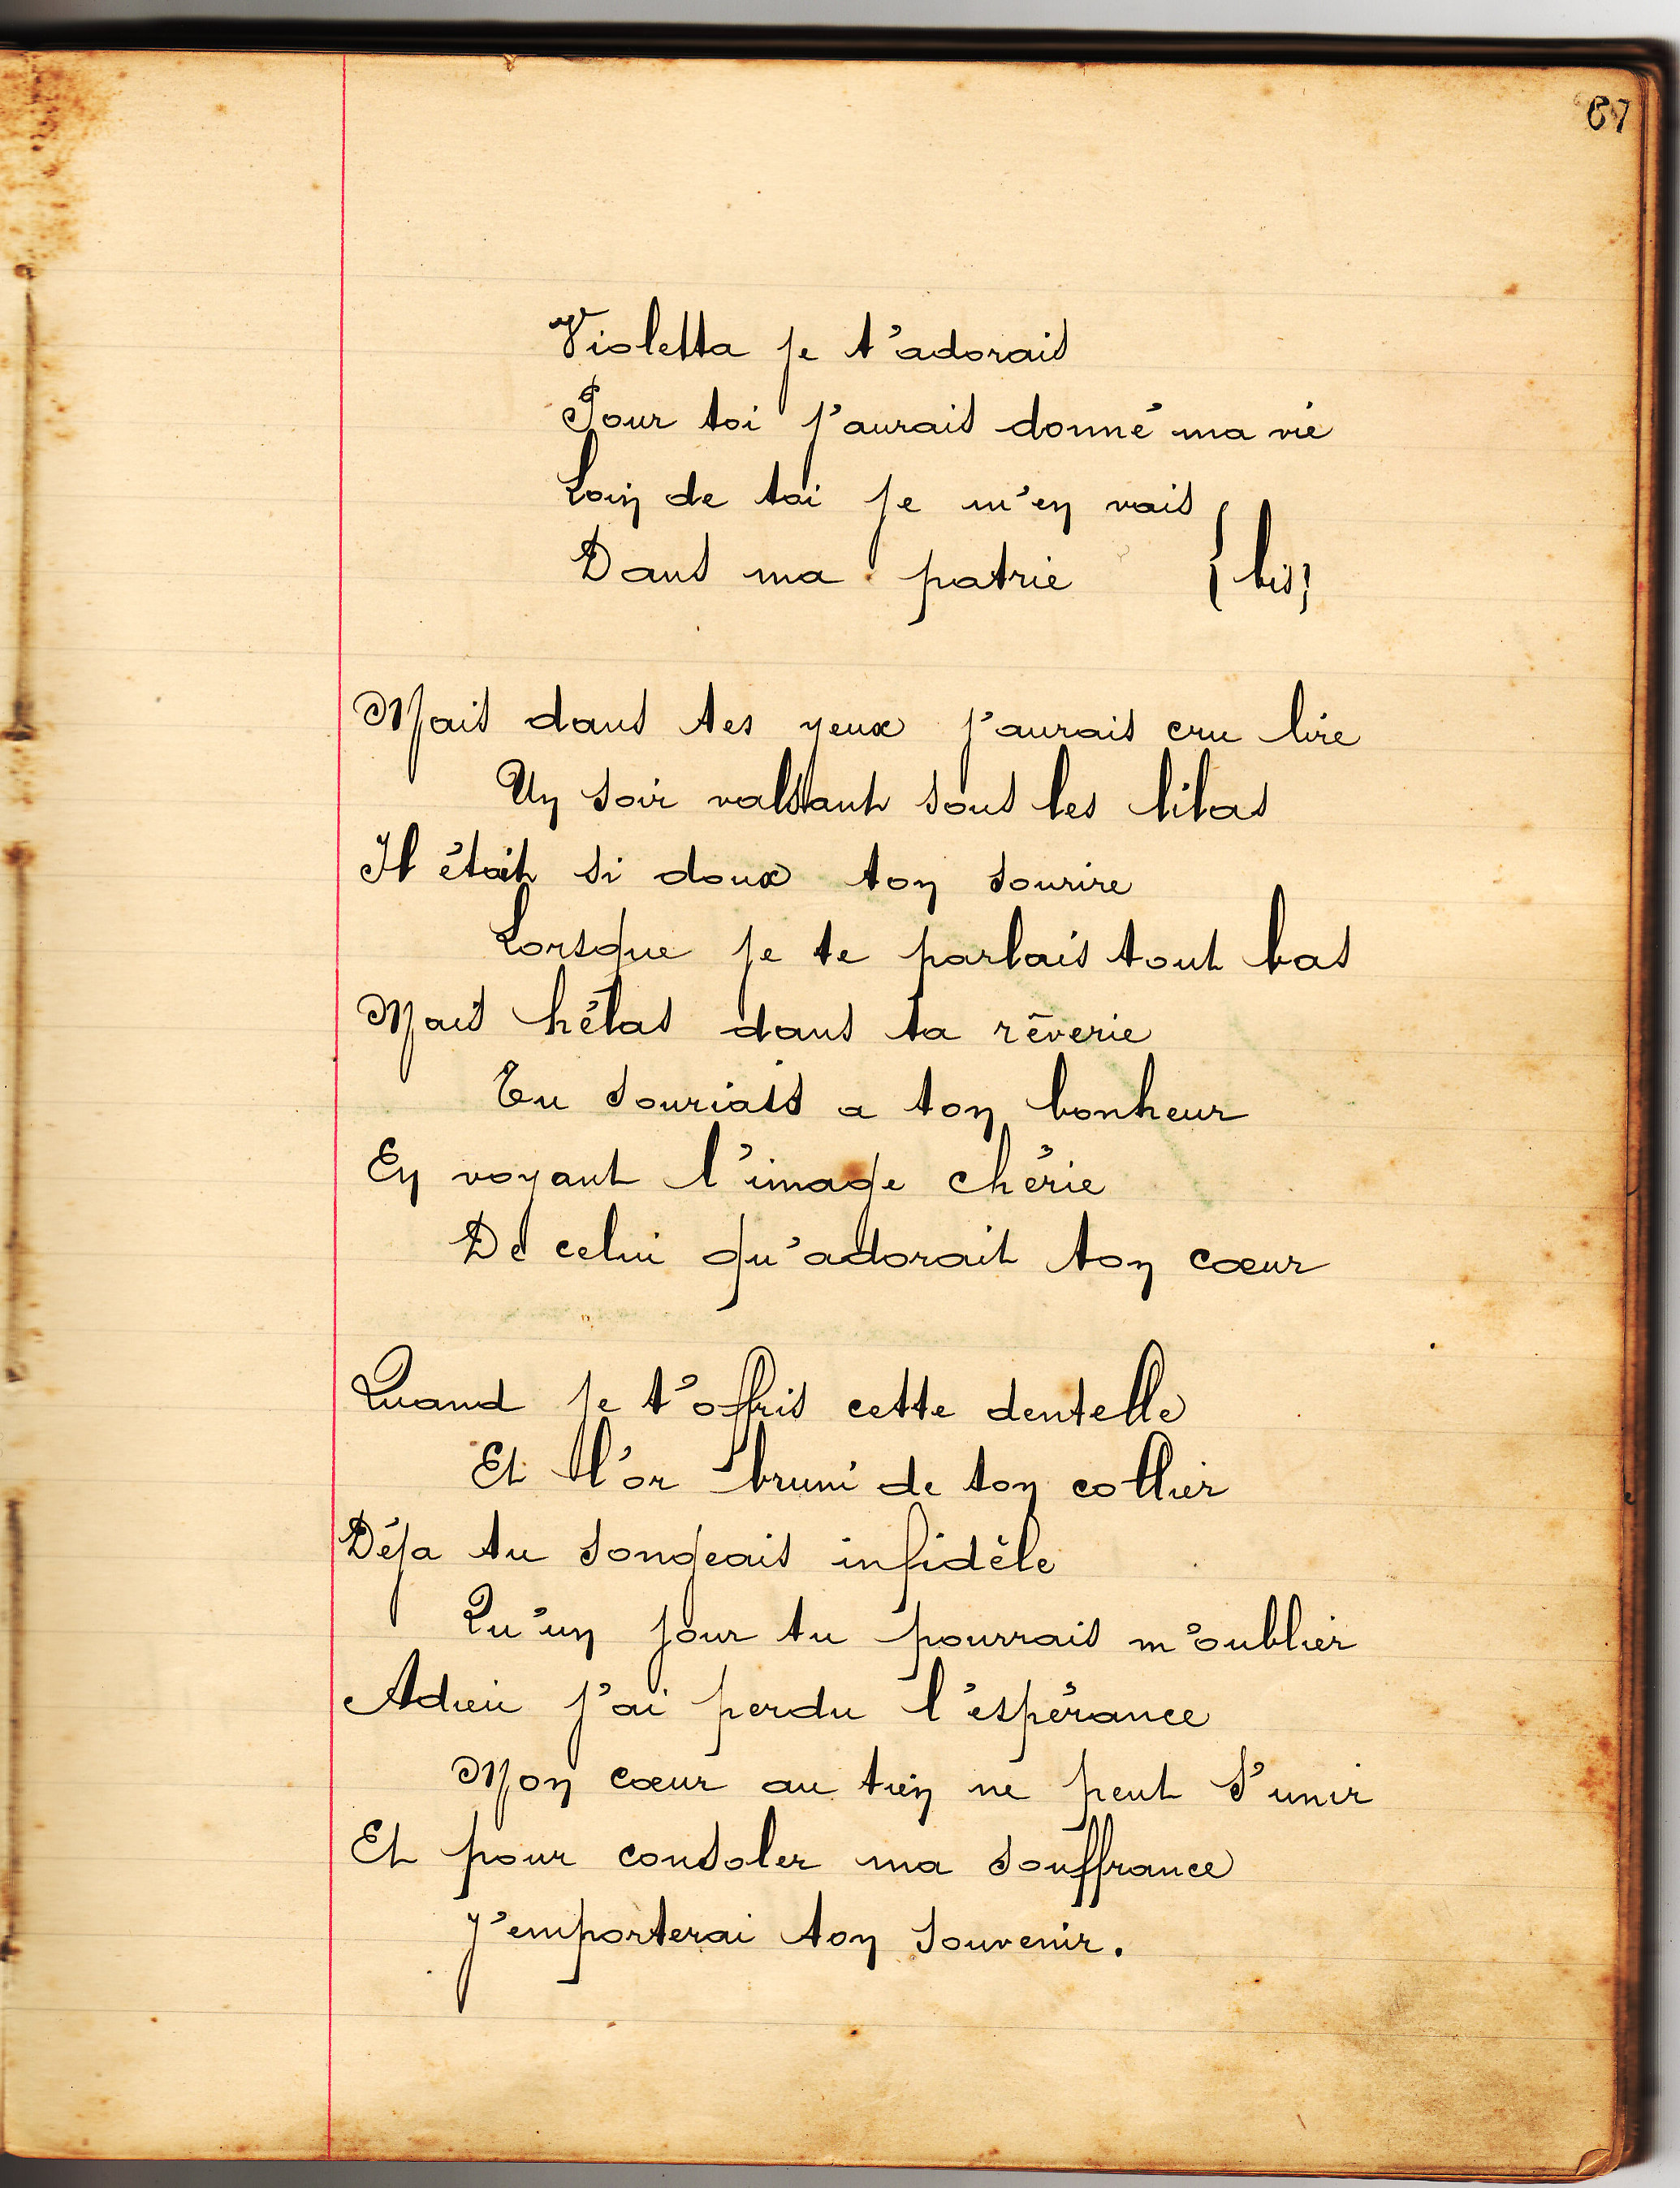 67
Violetta je t'adorais
Pour toi j'aurais donné ma vie
Loin de toi je m'en vais
Dans ma patrie { bis }
Mais dans tes yeux j'aurais cru lire
Un soir valsant sous les lilas
Il était si doux ton sourire
Lorsque je te parlais tout bas
Mais hélas dans ta rêverie
Tu souriais a ton bonheur
En voyant l'image chérie
De celui qu'adorait ton cœur
Quand je t'offris cette dentelle
Et l'or bruni de ton collier
Déja tu songeais infidèle
Qu'un jour tu pourrais m'oublier
Adieu j'ai perdu l'espérance
Mon cœur au tien ne peut s'unir
Et pour consoler ma souffrance
J'emporterai ton souvenir.